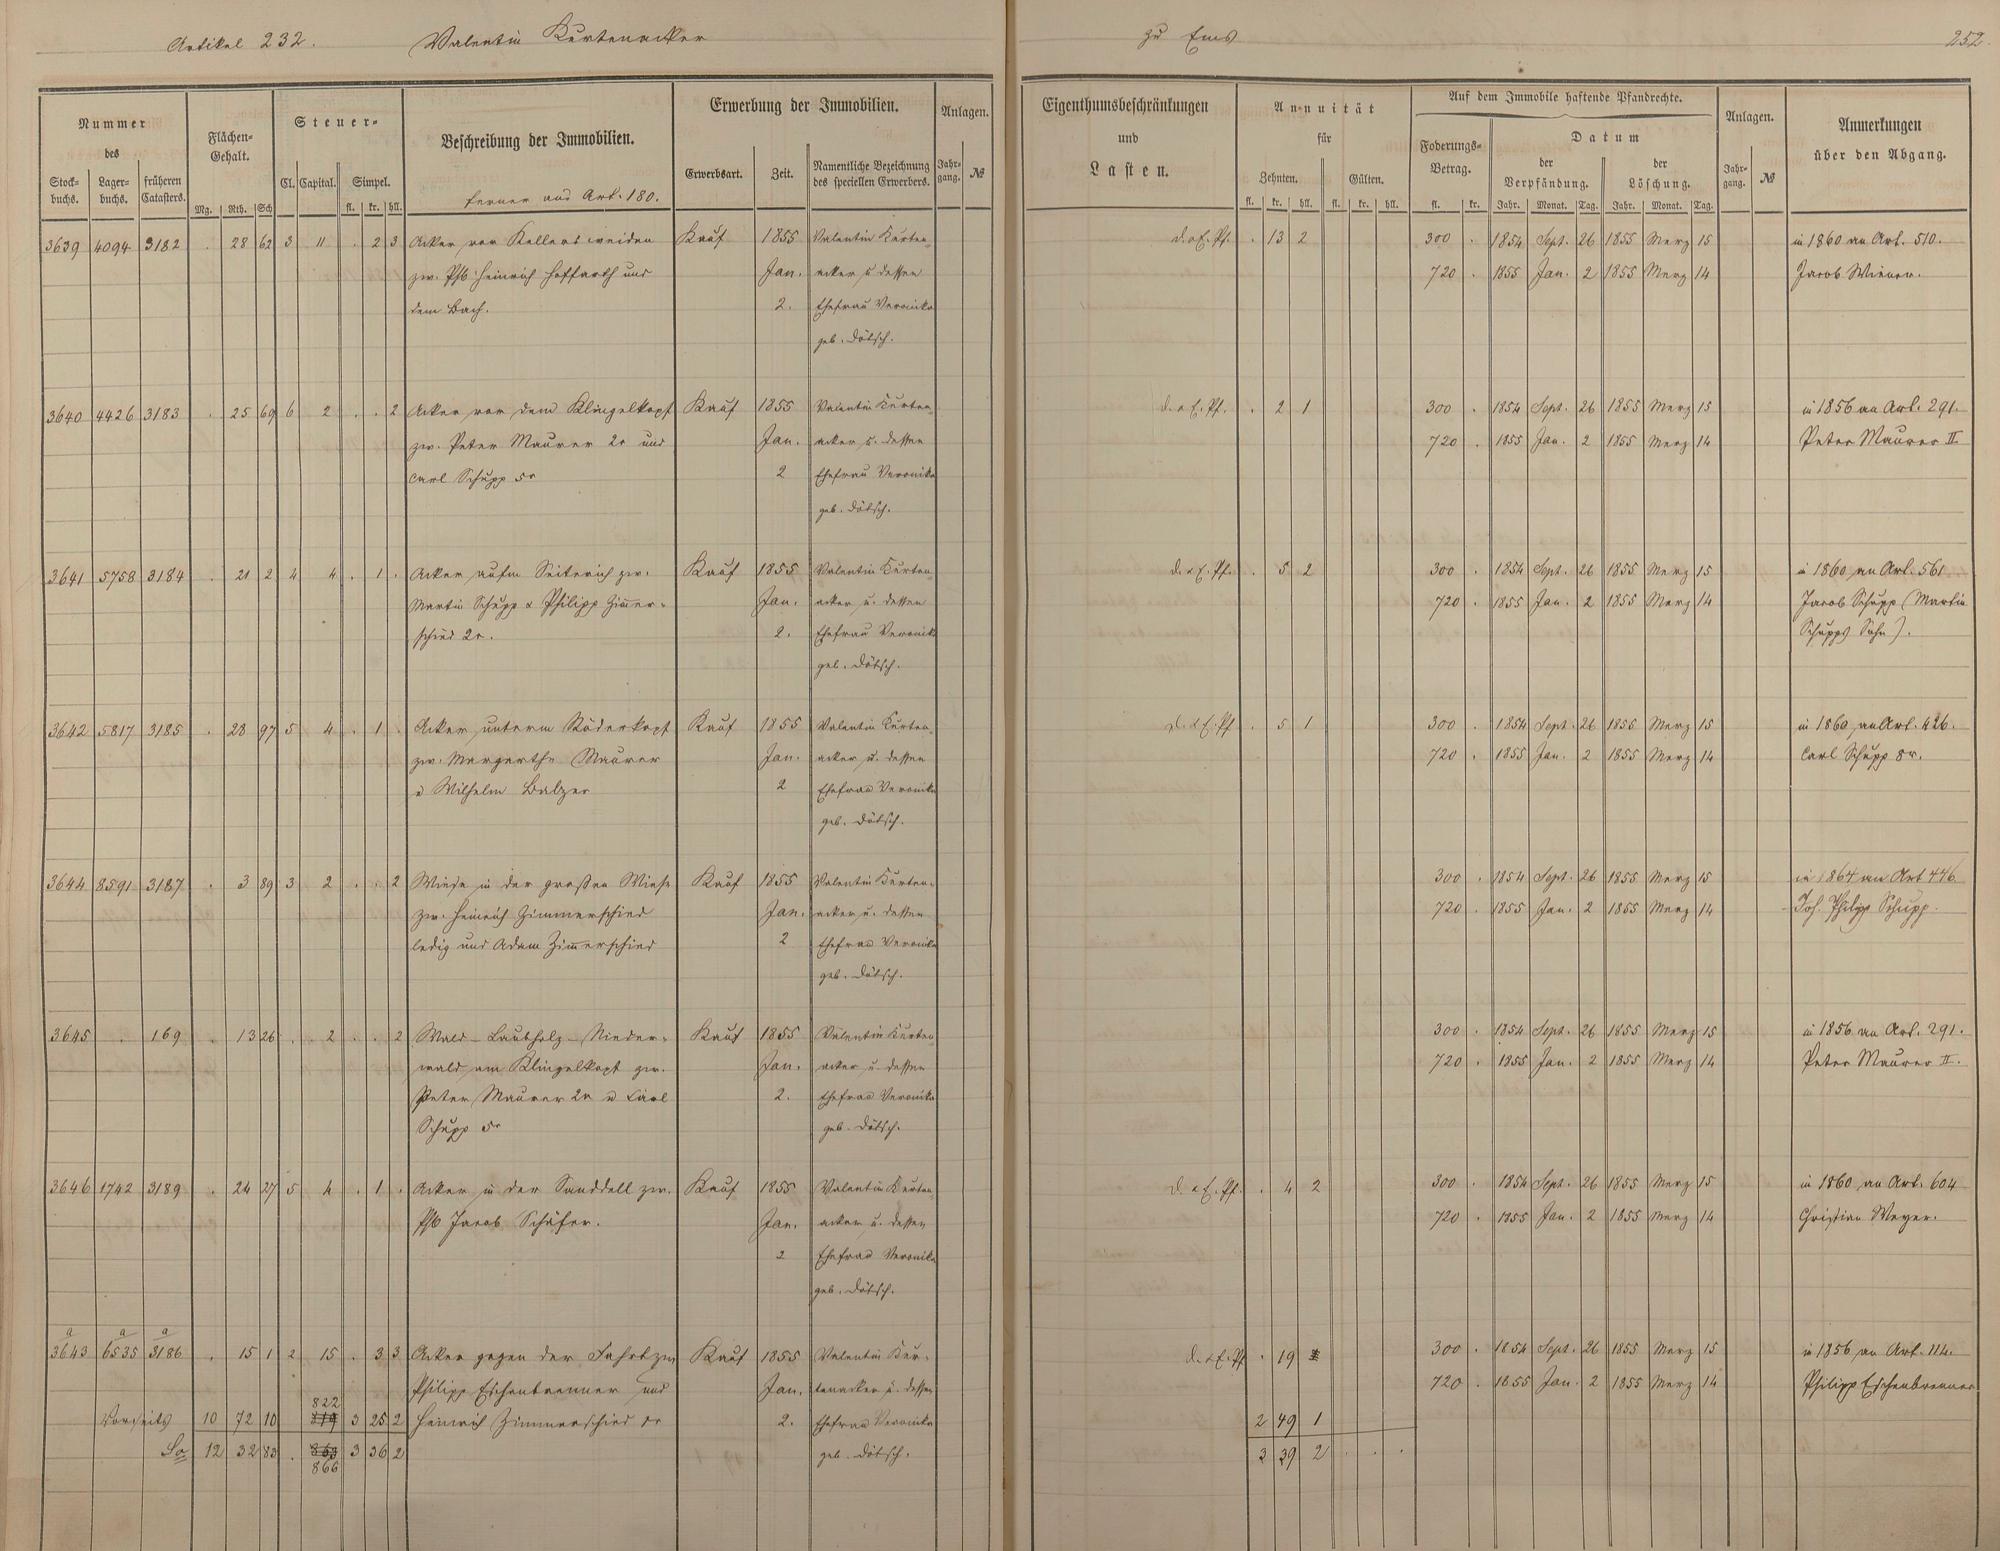 Artikel 232. Valentin Kurtenacker zu Ems 252.
Nummer des
Stock-buchs. Lager-buchs. früheren Catasters.
Flächen-Gehalt.
Mg. Rth. Sch
Steuer-
Cl. Capital. Simpel.
fl. kr. hll.
Beschreibung der Immobilien.
ferner aus Art. 180.
Erwerbung der Immobilien.
Erwerbsart. Zeit. Namentliche Bezeichnung des speciellen Erwerbers.
Anlagen.
Jahr-gang. №
Eigenthumsbeschränkungen
und
Lasten.
Annuität
für
Zehnten. Gülten.
fl. kr. hll. fl. kr. hll.
Auf dem Immobile haftende Pfandrechte.
Foderungs-Betrag.
fl. kr.
Datum
der Verpfändung. der Löschung.
Jahr. Monat. Tag. Jahr. Monat. Tag.
Anlagen.
Jahr-gang. №
Anmerkungen
über den Abgang.
3639 4094 3182 . 28 62 3 11 . 2 3 Acker vor Kellers weiden Kauf 1855 Valentin Kurten- d. o E. Pf. . 13 2 300 . 1854 Sept. 26 1855 Merz 15 in 1860 an Art. 510.
zw. Pfb Heinrich Hoffarth und Jan. acker u dessen 720 . 1855 Jan. 2 1855 Merz 14 Jacob Wiener.
dem Bach. 2. Ehefrau Veronika
geb. Dötsch.
3640 4426 3183 . 25 69 6 2 . . 2 Acker vor dem Klingelkopf Kauf 1855 Valentin Kurten- d. o E. Pf. . 2 1 300 . 1854 Sept. 26 1855 Merz 15 in 1856 an Art. 291.
zw. Peter Maurer 2r und Jan. acker u. dessen 720 . 1855 Jan. 2 1855 Merz 14 Peter Maurer II
Carl Schupp 5r 2 Ehefrau Veronika
geb. Dötsch.
3641 5758 3184 . 21 2 4 4 . 1 . Acker aufm Seiterich zw. Kauf 1855 Valentin Kurten- d. o E. Pf. . 5 2 300 . 1854 Sept. 26 1855 Merz 15 in 1860 an Art. 561
Martin Schupp & Philipp Zimer- Jan. acker u. dessen 720 . 1855 Jan. 2 1855 Merz 14 Jacob Schupp (Martin
schied 2r. 2. Ehefrau Veronika Schupps Sohn).
geb. Dötsch.
3642 5817 3185 . 28 97 5 4 . 1 . Acker unterm Röderkopf Kauf 1855 Valentin Kurten- d. o E. Pf. . 5 1 300 . 1854 Sept. 26 1855 Merz 15 in 1860 an Art. 426.
zw. Margarethe Maurer Jan. acker u. dessen 720 . 1855 Jan. 2 1855 Merz 14 Carl Schupp 8r.
u Wilhelm Balzer 2 Ehefrau Veronika
geb. Dötsch.
3644 8591 3187 . 3 89 3 2 . . 2 Wiese in der großen Wiese Kauf 1855 Valentin Kurten- 300 . 1854 Sept. 26 1855 Merz 15 in 1864 an Art 446
zw. Heinrich Zimmerschied Jan. acker u. dessen 720 . 1855 Jan. 2 1855 Merz 14 Joh. Philipp Schupp.
ledig und Adam Zimerschied 2 Ehefrau Veronika
geb. Dötsch.
3645 . 169 . 13 26 . 2 . . 2 Wald - Laubholz - Nieder- Kauf 1855 Valentin Kurten- 300 . 1854 Sept. 26 1855 Merz 15 in 1856 an Art. 291.
wald am Klingelkopf zw. Jan. acker u. dessen 720 . 1855 Jan. 2 1855 Merz 14 Peter Maurer II.
Peter Maurer 2r u Carl 2. Ehefrau Veronika
Schupp 5r geb. Dötsch.
3646 1742 3189 . 24 27 5 4 . 1 . Acker in der Sanddell zw. Kauf 1855 Valentin Kurten- d. o E. Pf. . 4 2 300 . 1854 Sept. 26 1855 Merz 15 in 1860 an Art. 604
Pfb Jacob Schäfer. Jan. acker u. dessen 720 . 1855 Jan. 2 1855 Merz 14 Christian Meyer.
2 Ehefrau Veronika
geb. Dötsch.
a a a
3643 6535 3186 . 15 1 2 15 . 3 3 Acker gegen der Fahrt zw Kauf 1855 Valentin Kur- d. o E. Pf . 19 300 . 1854 Sept. 26 1855 Merz 15 in 1856 an Art. 114.
Philipp Eschenbrenner und Jan. tenacker u. dessen 720 . 1855 Jan. 2 1855 Merz 14 Philipp Eschenbrenner
822
Vorseits 10 72 10 819 3 25 2 Heinrich Zimmerschied 1r 2. Ehefrau Veronika 2 49 1
Sa 12 32 83 . 863 3 36 2 geb. Dötsch. 3 39 2 . . .
866